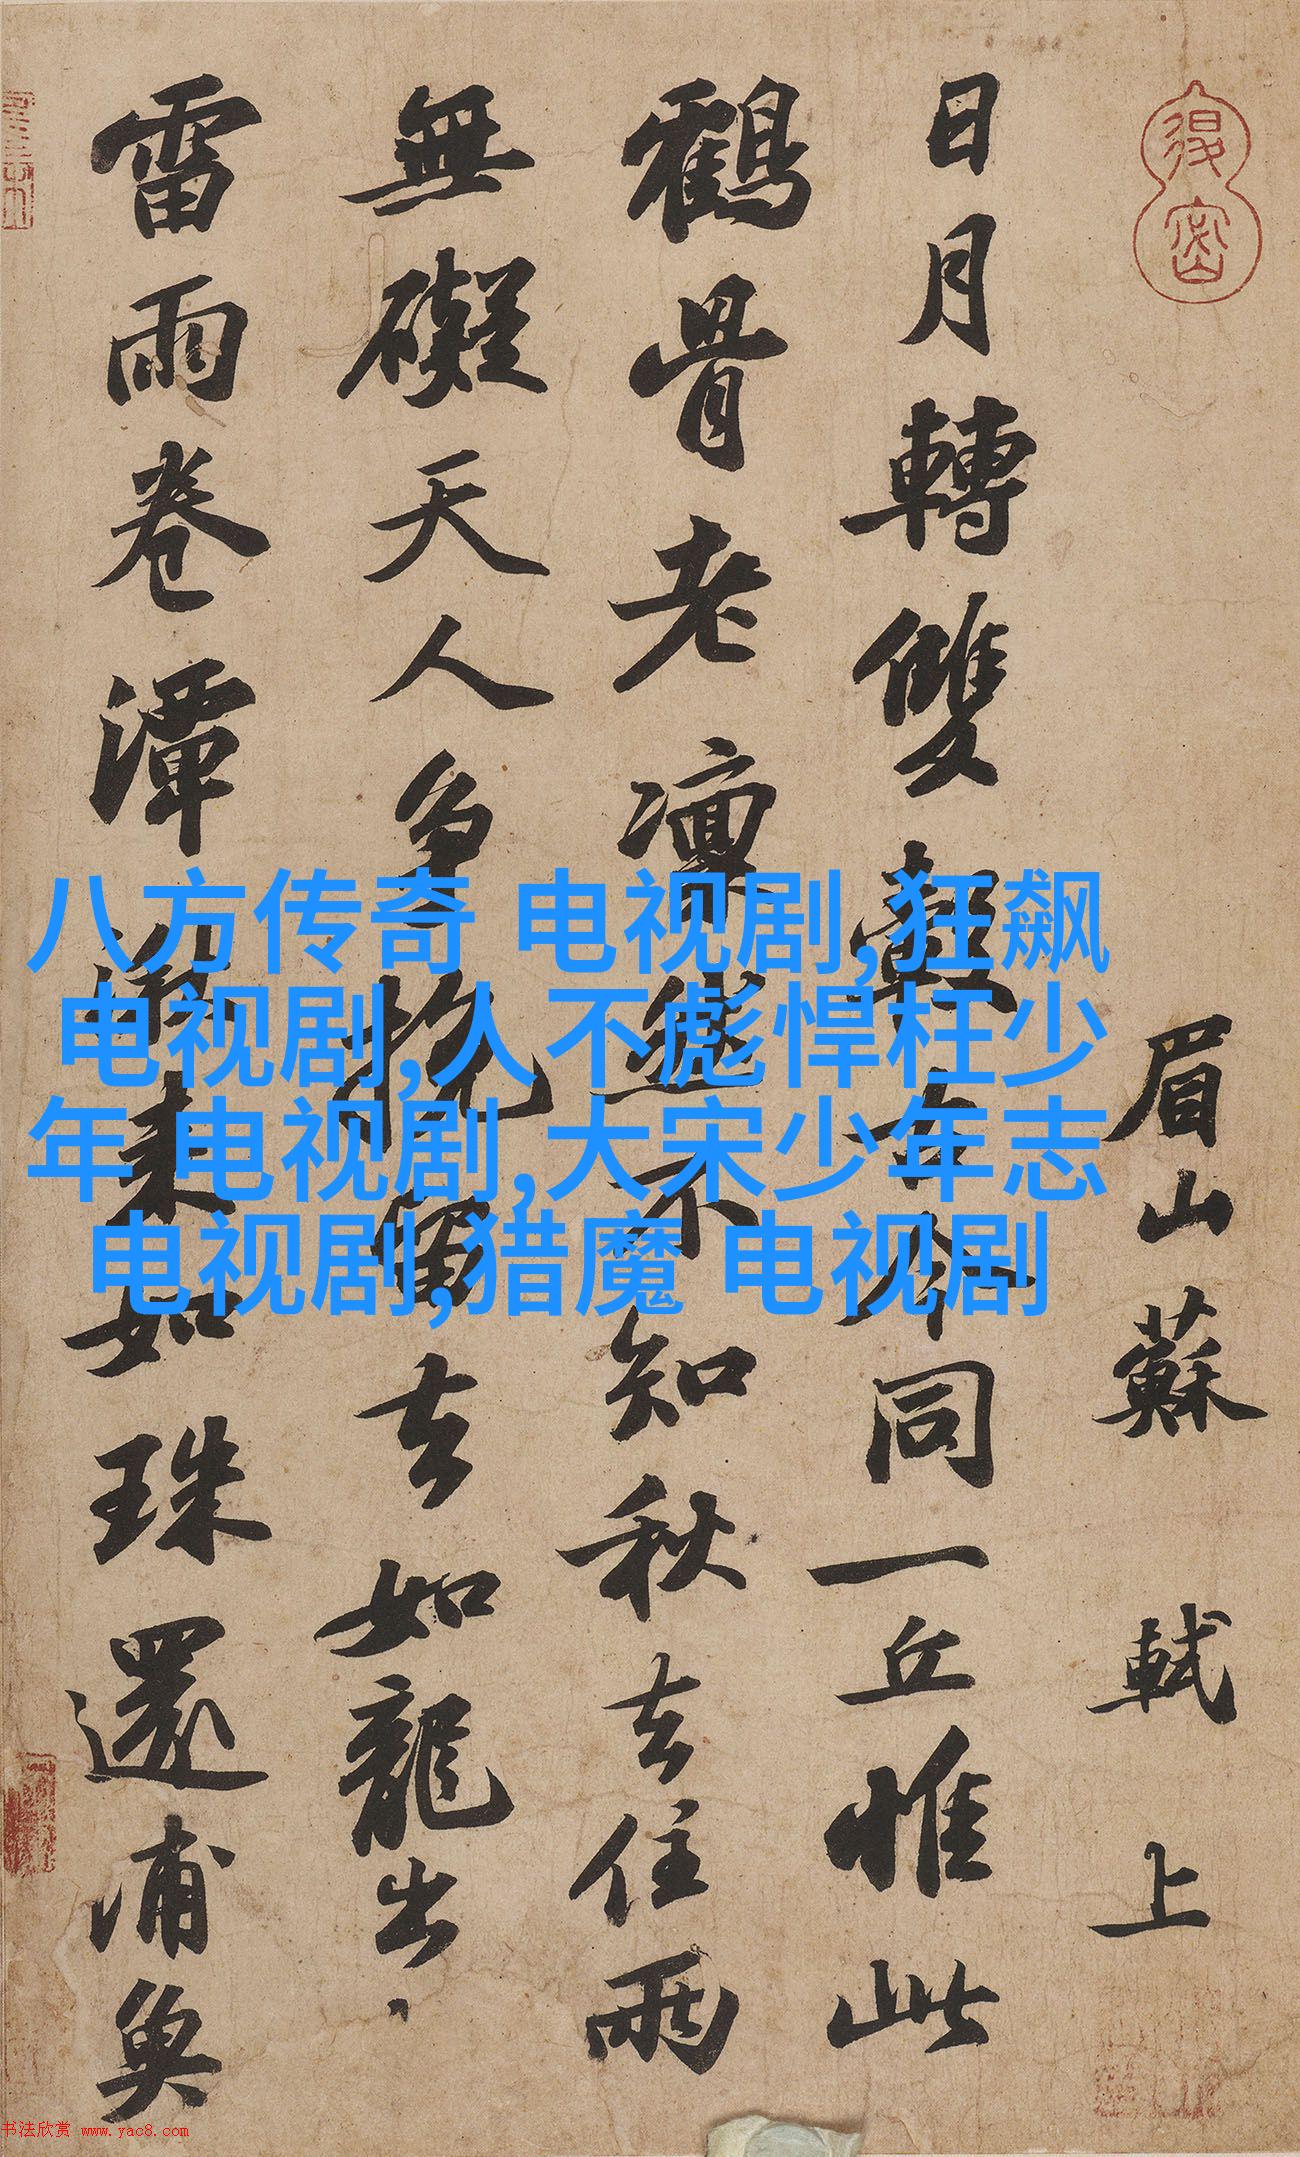 眉山蘇軾上
日月轉雙轂古今同一丘惟此
鶴骨老凛然不知秋去住兩
無礙天人争挽留去如龍出
雷雨卷潭湫来如珠還浦魚
八方传奇 电视剧,狂飙
电视剧,人不彪悍枉少
年 电视剧,大宋少年志
电视剧,猎魔 电视剧
书法欣赏 www.yac8.com